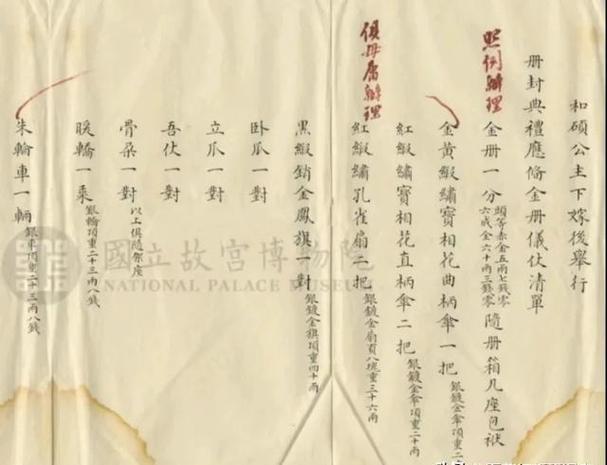 和碩公主下嫁後舉行
冊封典禮應備金冊儀仗清單
照例辦理
金冊一分頭等赤金五兩七錢零六成金六十兩三錢零隨冊箱几座包袱
金黃緞繡寶相花曲柄傘一把銀鍍金傘項重二
紅緞繡寶相花直柄傘二把銀鍍金傘項重二十兩
俱毋庸辦理
紅緞繡孔雀扇二把銀鍍金扇頁八塊重三十六兩
黑緞銷金鳳旗一對銀鍍金旗項重四十兩
臥瓜一對
立瓜一對
吾仗一對
骨朵一對以上俱隨架座
暖轎一乘銀轎項重二十三兩八錢
朱輪車一輛銀車項重二十三兩八錢
國立故宮博物院
NATIONAL PALACE MUSEUM